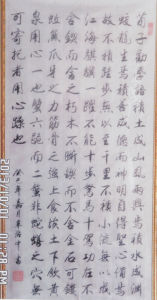 荀子勸學語積土成山風雨興焉積水成淵
蛟龍生焉積善成德而神明自得聖心備焉
故不積跬步無以至千里不積小流無以成
江海騏驥一躍不能十步駑馬十駕功在不
舍鍥而舍之朽木不折鍥而不舍金石可鏤
蚓無爪牙之利筋骨之強上食埃土下飲黃
泉用心一也蟹六跪而二螯非蛇鱔之穴無
可寄託者用心躁也